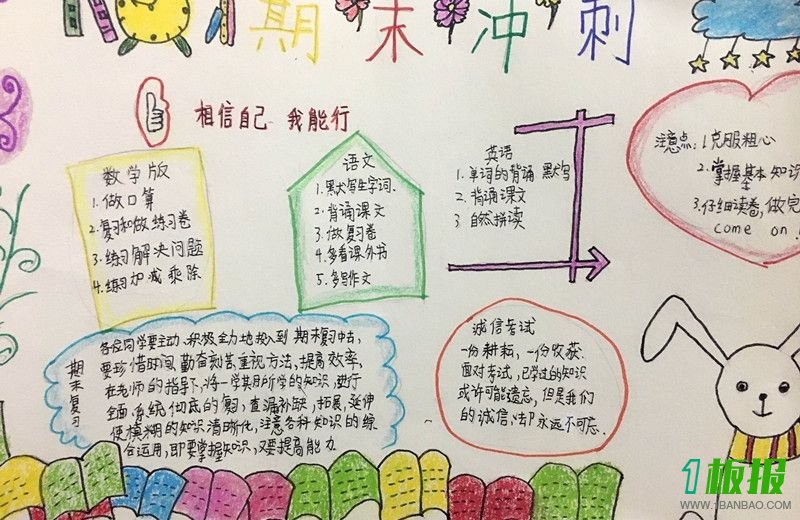 期末冲刺
相信自己 我能行
数学版
1.做口算
2.复习和做练习卷
3.练习解决问题
4.练习加减乘除
语文
1.默写生字词.
2.背诵课文
3.做复习卷
4.多看课外书
5.多写作文
英语
1.单词的背诵 默写
2.背诵课文
3 自然拼读
注意点:1克服粗心
2.掌握基本知识
3.仔细读卷,做完
come on!
期末复习
各位同学要主动、积极、全力地投入到期末复习中去,
要珍惜时间,勤奋刻苦,重视方法,提高效率,
在老师的指导下,将一学期所学的知识,进行
全面、系统、彻底的复习,查漏补缺,拓展,延伸
使模糊的知识清晰化,注意各科知识的综
合运用,即要掌握知识,又要提高能力.
诚信考试
一份耕耘,一份收获.
面对考试,已学过的知识
或许可能遗忘,但是我们
的诚信,却永远不可忘.
1板报
WWW.1BANBAO.COM